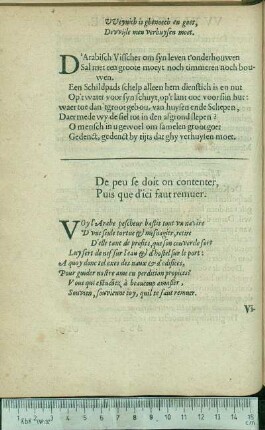 VVeynich is ghenoech en goet,
De vvijle men verhuysen moet.
D'Arabisch Visscher om syn leven t'onderhouwen
Sal met een groote moeyt noch timmeren noch bouwen.
Een Schildpads schelp alleen hem dienstich is en nut
Op't water voor syn schuyt, op't lant ooc voor sijn hut:
waer toe dan t'grootgebou, van huysen ende Schepen,
Daer mede wy de siel tot in den afgrond slepen?
O mensch in u gevoel om samelen groot goet:
Gedenct, gedenct by tijts dat ghy verhuysen moet.
De peu se doit on contenter,
Puis que d'ici faut remuer.
VOy l'Arabe pescheur bastir tout un navire
D'une seule tortue & mesnager, retire
D'elle tant de profit, que son couvercle sert
Luy sert de nef sur l'eau & d'hostel sur le port:
A quoy donc tel exes des naux & d'edifices,
Pour guider nostre ame en perdition propices?
Vous qui estudiez à beaucoup amasser,
Souvien, souvienne toy, qu'il te faut remuer.
Vi-